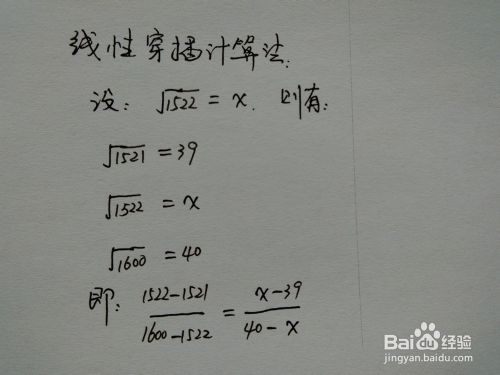 线性穿插计算法:
设: √1522 = x. 则有:
√1521 = 39
√1522 = x
√1600 = 40
即: (1522-1521)/(1600-1522) = (x-39)/(40-x)
Baidu经验
jingyan.baidu.com